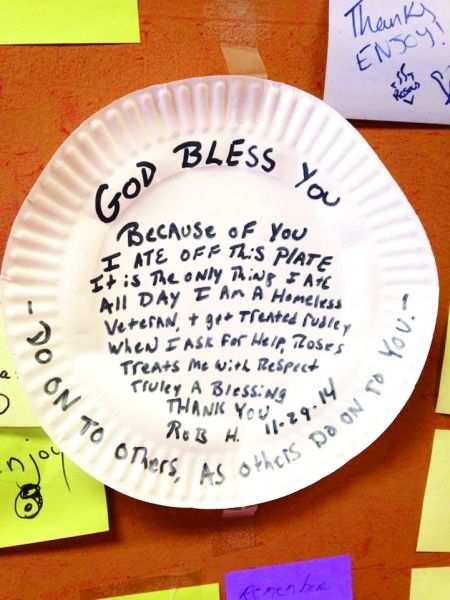 Thanks
ENJOY!
GOD BLESS YOU
BECAUSE OF YOU
I ATE OFF THIS PLATE
It is The ONLY Thing I Ate
All DAY I AM A Homeless
Veteran, + get Treated rudley
When I ASK FOR Help, Roses
Treats Me with Respect
Truley A Blessing
THANK YOU
ROB H. 11-29-14
- DO ON TO OTHERS, AS OTHERS DO ON TO YOU. -
enjoy
Remember